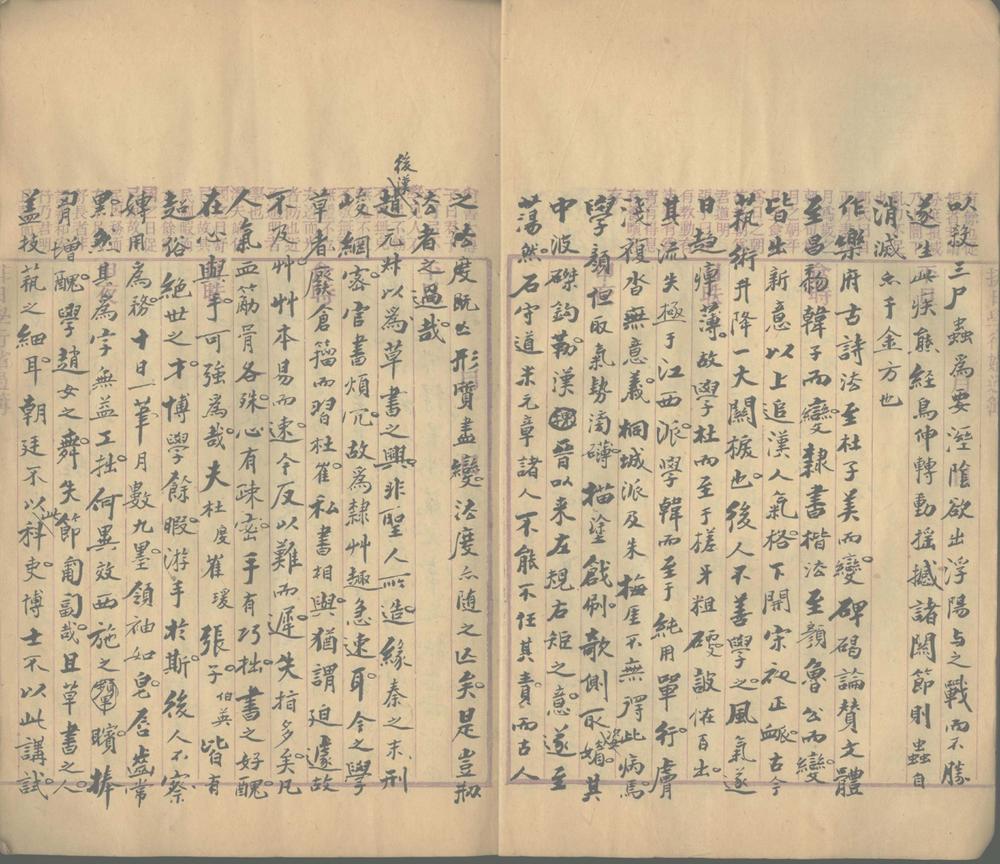 以殺三尸蟲為要涇陰欲出浮陽与之戰而不勝
遂生此疾熊經鳥伸轉動搖撼諸関節則蟲自
消滅亦千金方也
作樂府古詩法至杜子美而變碑碣論贊文體
至昌黎韓子而變隸書楷法至顏魯公而變
皆出新意以上追漢人氣格下開宋祀正脈古今
蓺術升降一大關梜也後人不善學之風氣遂
日趋痺薄故學杜而至于搓牙粗硬詖俗百出
其流失極于江西派學韓而至于純用單行膚
淺複沓無意義桐城派及朱梅厓不無得此病焉
學顏但取氣勢滂礴描塗戧刷欹側取姿媚其
中波磔鈎勒漢晉以来左規右矩之意遂至
蕩然石守道米元章諸人不能不任其責而古人
之法度旣亾形質盡變法度亦随之亾矣是豈剏
法者之過哉
後漢趙元叔以為草書之興非聖人所造緣秦之末刑
峻網密官書煩冗故為隸艸趣急速耳今之學
草者廢倉籀而習杜崔私書相與猶謂迫遽故
不及艸艸本易而速今反以難而遲失指多矣凡
人氣血筋骨各殊心有疎密手有巧拙書之好醜
在心與手可強為哉夫杜度崔瑗張子伯英皆有
超俗絕世之才博學餘暇游手於斯後人不察
専用為務十日一筆月數九墨領袖如皂唇齒常
黑然其為字無益工拙何異效西施之顰矉捧
胷增醜學趙女之舞失節匍匐哉且草書之人
盖技蓺之細耳朝廷不以此科吏博士不以此講試